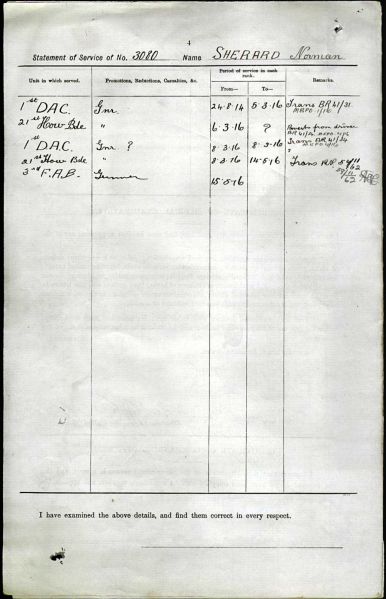 4
Statement of Service of No. 3080 Name SHERARD Norman
Unit in which served. Promotions, Reductions, Casualties, &c. Period of service in each rank. Remarks.
From— To—
1st D.A.C. Gnr. 24.8.14 5.3.16 Trans BR 41/31
MRPO 1/16
21st How Bde " 6.3.16 ? Reverts from driver
1st D.A.C. Gnr ? 8.3.16 8.3.16 Trans BR 41/34
21st How Bde " 8.3.16 14.5.16 Trans
3rd F.A.B. Gunner 15.5.16
I have examined the above details, and find them correct in every respect.